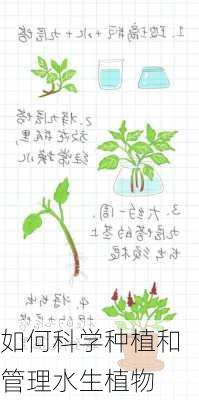 +水+九层塔
2、将九层塔
放在瓶里，
经常换水
3、大约一周，
九层塔的茎上
长出须根
4、将长出
如何科学种植和
管理水生植物